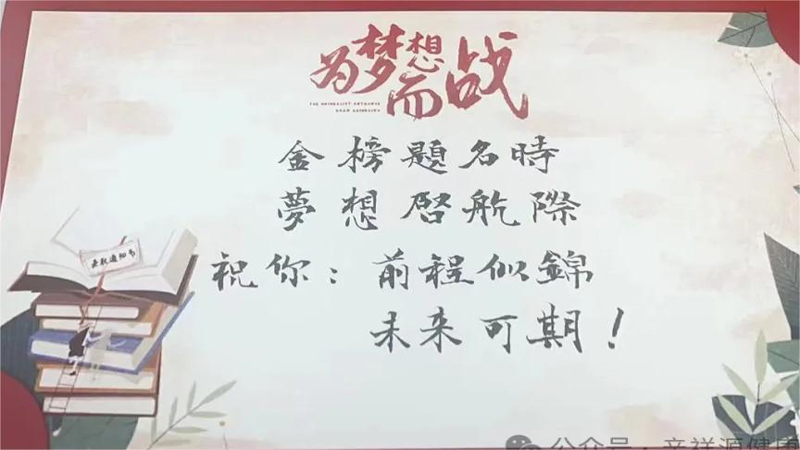 为梦想而战
金榜題名時
夢想啓航際
祝你：前程似錦
未来可期！
录取通知书
公众号·辛祥源健康